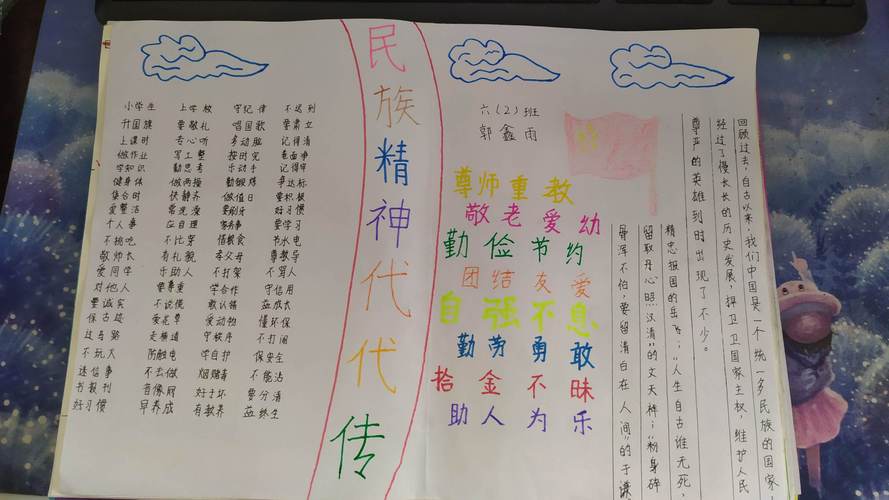 小学生 上学校 守纪律 不迟到
升国旗 要敬礼 唱国歌 要肃立
上课时 专心听 多动脑 记得清
做作业 写工整 按时完 卷面净
学知识 勤思考 乐动手 记得牢
健身体 做两操 勤锻炼 争达标
集合时 快静齐 做值日 要积极
爱整洁 常洗澡 要刷牙 好习惯
个人事 应自理 家务事 要学习
不挑吃 不比穿 惜粮食 节水电
敬师长 有礼貌 孝父母 尊教导
爱同学 乐助人 不打架 不骂人
对他人 要尊重 学合作 守信用
要诚实 不说慌 敢认错 益成长
保古迹 爱花草 爱动物 懂环保
过马路 走横道 守秩序 不打闹
不玩火 防触电 学自护 保安全
迷信事 不去做 烟赌毒 不能沾
书报刊 音像 好于坏 要分清
好习惯 早养成 有教养 益终生
民族精神代代传
六(2)班
郭鑫雨
尊师重教
敬老爱幼
勤俭节约
团结友爱
自强不息
勤劳勇敢
拾金不昧
助人为乐
回顾过去,自古以来,我们中国是一个统一多民族的国家
经过了慢长长的历史发展,捍卫卫国家主权,维护人民
尊严的英雄到时出现了不少。
精忠报国的岳飞;"人生自古谁无死,
留取丹心照汉清"的文天祥;"粉身碎
骨浑不怕,要留清白在人间"的于谦